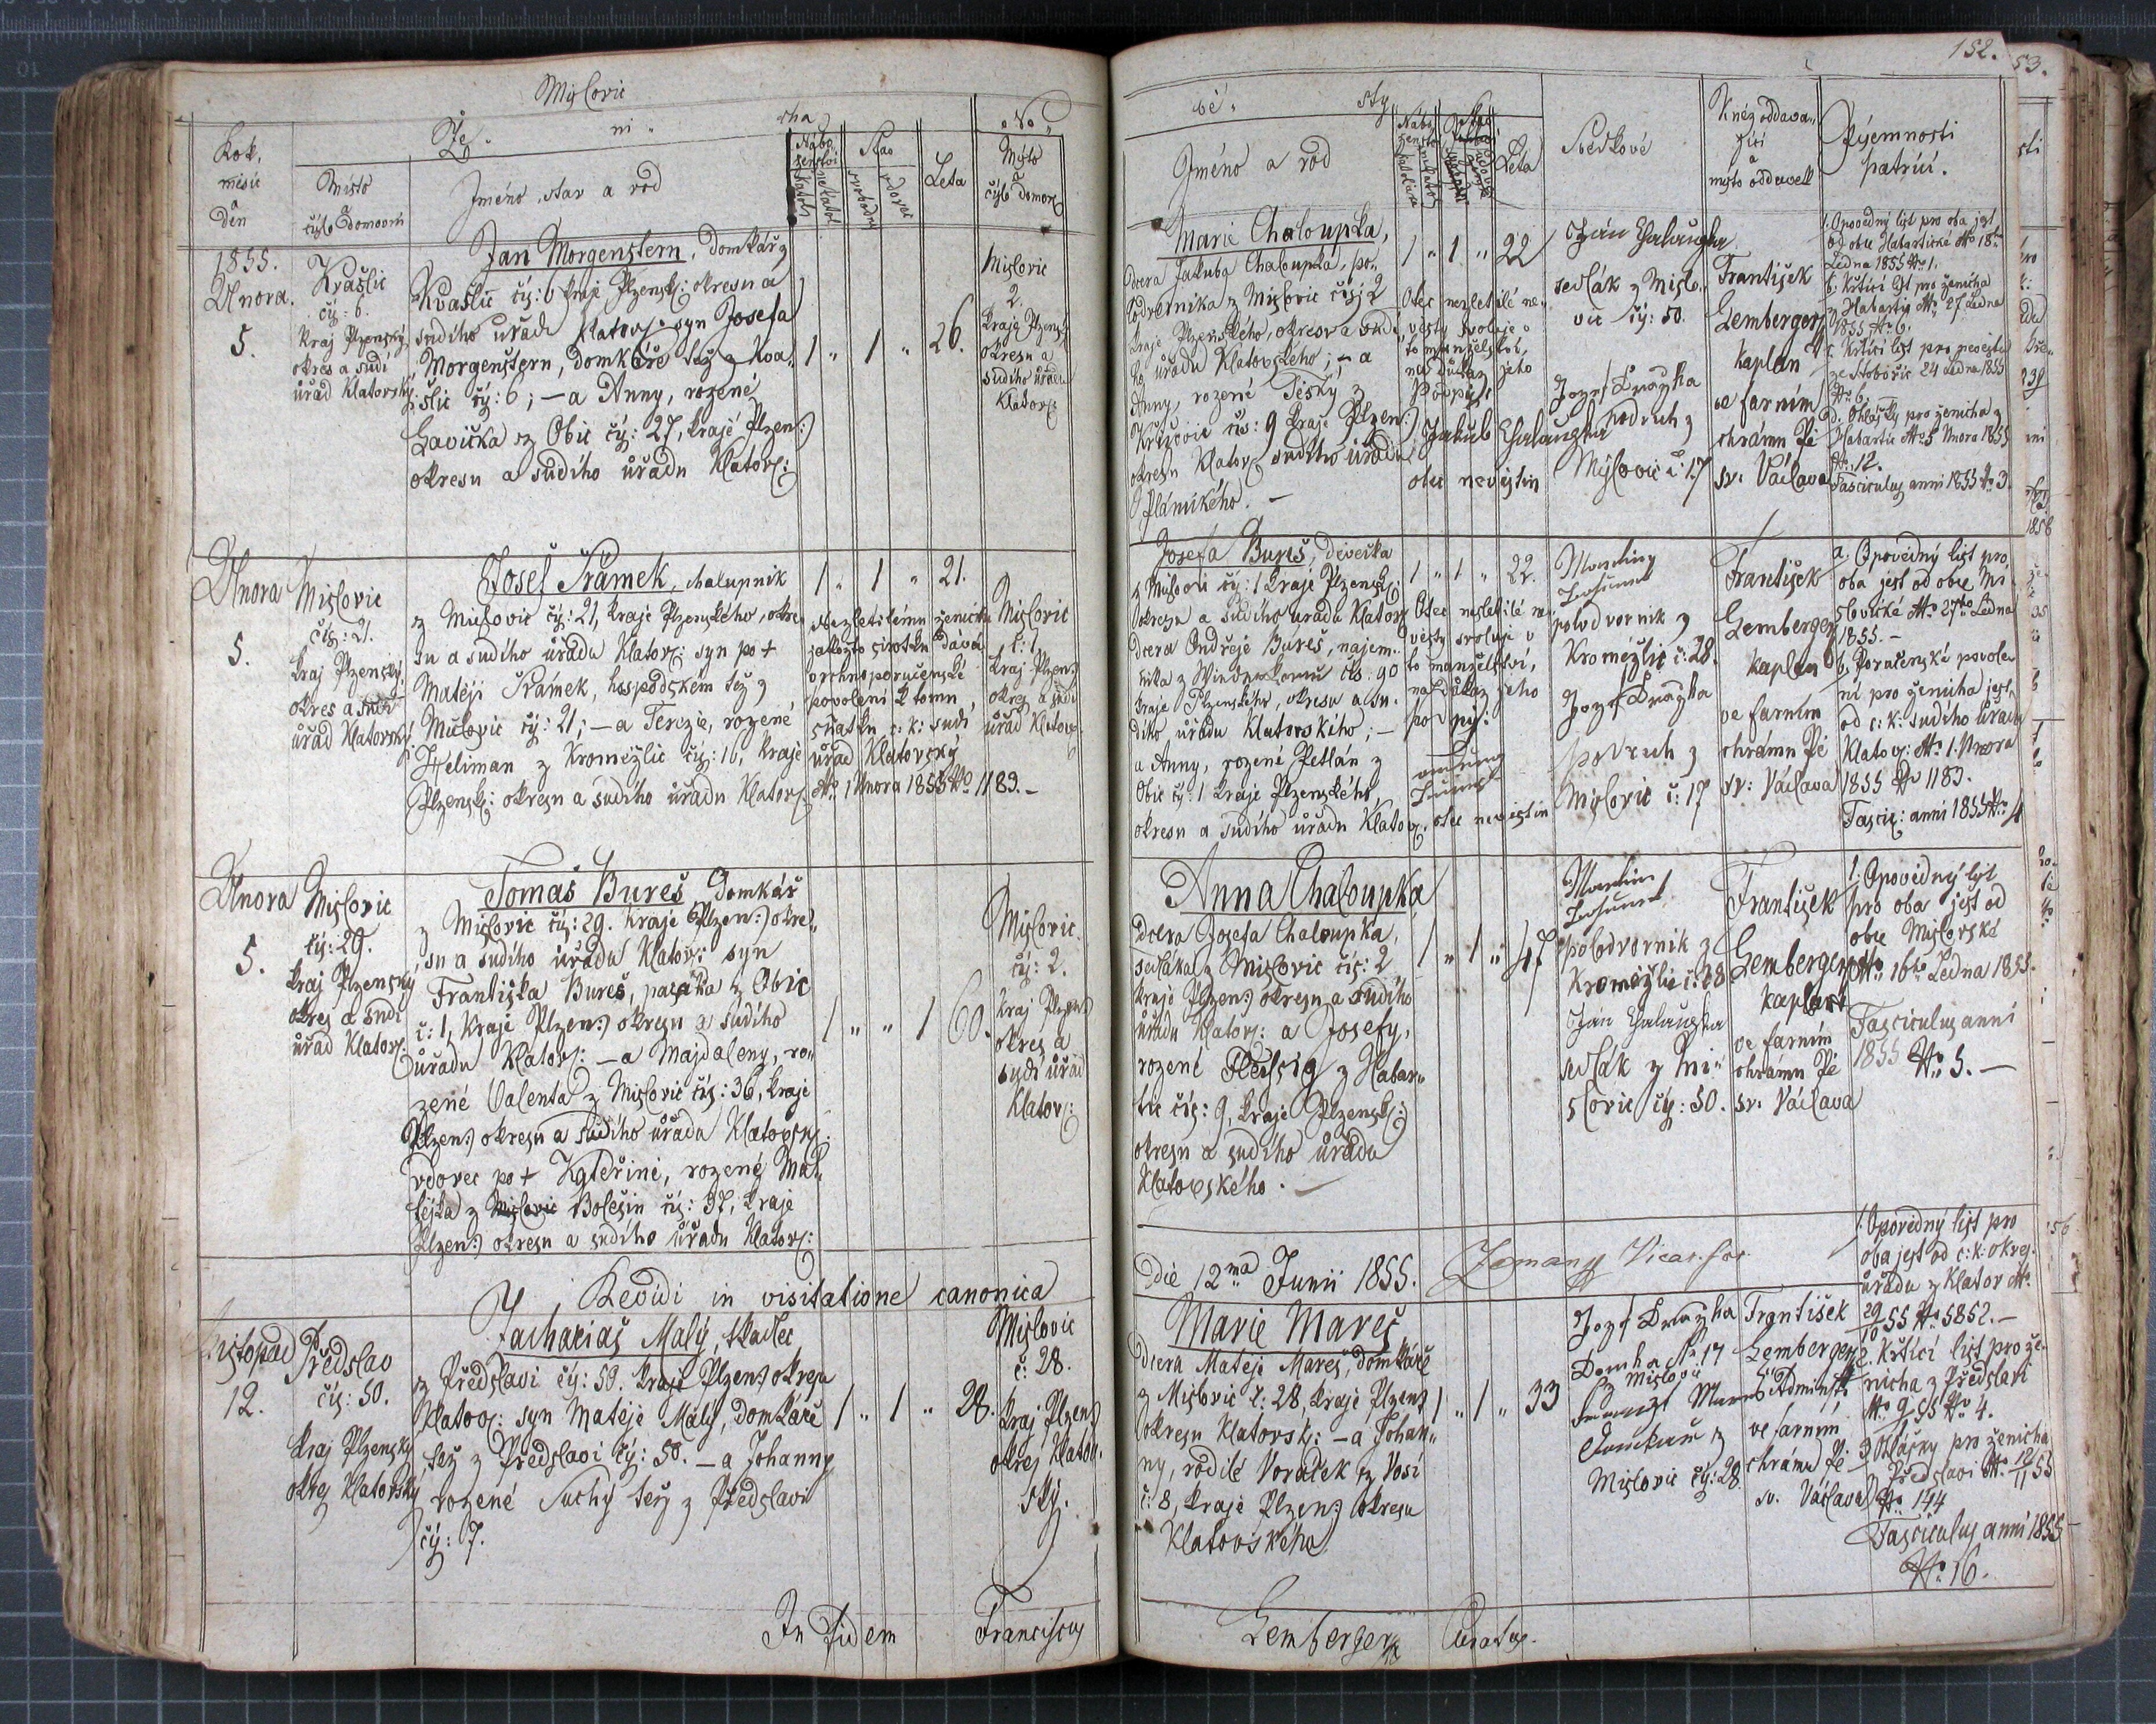 Mislovic
Že
ni
cha
Rok,
měsíc
a
den
Místo
a
číslo domovní
Jméno, stav a rod
Nábo-
ženství
katol:
nekatol:
Stav
svobodný
vdovec
Leta
No
Místo
a
číslo domov:
1855.
Února.
5.
Kvašlic
čís: 6.
Kraj Plzenský
okres a sudí
úřad Klatovský
Jan Morgenstern, domkář z
Kvašlic čís: 6 kraje Plzensk: okresu a
sudího úřadu Klatovs: syn Josefa
Morgenstern, domkáře též z Kva-
šlic čís: 6; – a Anny, rozené
Havlička z Obic čís: 27, kraje Plzen:
okresu a sudího úřadu Klatovs:
1 " 1 " 26.
Mislovic
2.
Kraje Plzensk:
okresu a
sudího úřadu
Klatovs:
Února
5.
Mislovic
čís: 21.
Kraj Plzenský
okres a sudí
úřad Klatovský
Josef Šrámek, chalupnik
z Mislovic čís: 21, kraje Plzenského, okre-
su a sudího úřadu Klatovs: syn po +
Matěji Šrámek, hospodském též z
Mislovic čís: 21; – a Terezie, rozené
Heliman z Kroměžlic čís: 16, kraje
Plzensk: okresu a sudího úřadu Klatovs:
1 " 1 " 21.
Nezletilému ženichu
jakožto sirotku dává
vrchnoporučenské
povolení k tomu
sňatku c: k: sudí
úřad Klatovský
dto 1 Února 1855 No 1183. –
Mislovic
č: 1
Kraj Plzen:
okres a sudí
úřad Klatov:
Února
5.
Mislovic
čís: 29.
Kraj Plzenský
okres a sudí
úřad Klatovs:
Tomáš Bureš Domkář
z Mislovic čís: 29. kraje Plzen: okre-
su a sudího úřadu Klatovs: syn
Františka Bureš, pasáka z Obic
č: 1, kraje Plzen: okresu a sudího
úřadu Klatovs: – a Majdaleny, ro-
zené Valenta z Mislovic čís: 36, kraje
Plzen: okresu a sudího úřadu Klatovsk:
vdovec po + Kateřině, rozené Ma-
tějka z Mislovic Bolešin čís: 37, kraje
Plzen: okresu a sudího úřadu Klatovs:
1 " " 1 60.
Mislovic
čís: 2.
Kraj Plzen:
okres a
sudí úřad
Klatov:
Revidi in visitatione canonica
Listopad
12.
Předslav
čís: 50.
Kraj Plzensky
okres Klatovsky
Zachariaš Malý, tkadlec
z Předslavi čís: 50. kraje Plzen: okresu
Klatov: syn Matěje Malý, domkáře
též z Předslavi čís: 50. – a Johanny
rozené Suchý též z Předslavi
čís: 7.
1 " 1 " 28.
Mislovic
č: 28.
Kraj Plzen:
okres Klatov-
ský.
In Fidem Franciscus
152.
53.
vě
sty
Jméno a rod
Nábo-
ženství
Stav
Leta
Svědkové
Kněz oddáva-
jící
a
místo oddavek
Písemnosti
patřící.
Marie Chaloupka,
dcera Jakuba Chaloupka, po-
lodvorníka z Mislovic čís: 2
kraje Plzenského, okresu a sudí-
ho úřadu Klatovského; – a
Anny, rozené Tésky z
čís: 9 kraje Plzen:
okresu Klatov: sudího úřadu
Plánického. –
1 " 1 " 22
Otec nezletilé ne-
věsty svoluje v
to manželství,
na důkaz jeho
Podpis:
Jakub Halaupka
otec nevěstin
Ján Halaupka
sedlák z Mislo-
vic čís: 50.
Jozef Prazka
podruh z
Mislovic č: 17
František
Lemberger
kaplan
ve farním
chrámu Pé
sv. Václava
1. Opovědný list pro oba jest
od obce Habartické dto 18ho
Ledna 1855 No 1.
b. Křticí list pro ženicha
z Habartic dto 27 Ledna
1855 No 6.
c. Křticí list pro nevěstu
ze Stobořic 24 Ledna 1855
No 6.
d. Ohlášky pro ženicha z
Habartic dto 5 Února 1855
No 12.
Fasciculus anni 1855 No 3.
Josefa Bureš, děvečka
z Mislovic čís: 1 kraje Plzensk:
okresu a sudího úřadu Klatov:
dcera Ondřeje Bureš, najem-
nika z čís: 90
kraje Plzenského, okresu a su-
dího úřadu Klatovského; –
a Anny, rozené Petlán z
Obic čís: 1 kraje Plzenského,
okresu a sudího úřadu Klatov:
1 " 1 " 22.
Otec nezletilé ne-
věsty svoluje v
to manželství,
na důkaz jeho
podpis:
otec nevěstin
Martin
polodvornik z
Kroměžlic č: 28.
Jozef Prazka
podruh z
Mislovic č: 17
František
Lemberger
kaplan
ve farním
chrámu Pé
sv: Václava
a. Opovědný list pro
oba jest od obce Mi-
slovické dto 27ho Ledna
1855. –
b. Poručenské povole-
ní pro ženicha jest
od c: k: sudího úřadu
Klatov: dto 1. Února
1855 No 1183.
Fascic: anni 1855 No 4
Anna Chaloupka
dcera Josefa Chaloupka,
sedláka z Mislovic čís: 2
kraje Plzen: okresu a sudího
úřadu Klatovs: a Josefy,
rozené z Habar-
tic čís: 9, kraje Plzensk:
okresu a sudího úřadu
Klatovského. –
1 " 1 " 47
Martin
polodvornik z
Kroměžlic č: 28
Ján Halaupka
sedlák z Mi-
slovic čís: 50.
František
Lemberger
kaplan
ve farním
chrámu Pé
sv. Václava
1. Opovědný list
pro oba jest od
obce Mislovské
dto 16ho Ledna 1855.
Fasciculus anni
1855 No 5. –
die 12ma Junii 1855. Vicar. for.
Marie Mareš
dcera Matěje Mareš, domkáře
z Mislovic č: 28, kraje Plzen:
okresu Klatovsk: – a Johan-
ny, rodilé Voráček z Vosí
č: 8, kraje Plzen: okresu
Klatovského
1 " 1 " 33
Jozef Prazka
Domkař No 17
z Mislovic
Mareš
Domkář z
Mislovic čís: 28.
František
Lemberger
Administr:
ve farním
chrámu Pé
sv. Václava
1. Opovědný list pro
oba jest od c: k: okres.
úřadu z Klatov dto
29/10 55 No 5852. –
2. Křticí list pro že-
nicha z Předslavi
No 4.
3. Ohlášky pro ženicha
z Předslavi dto 12/11 55
No 144
Fasciculus anni 1855
No 16.
Lemberger Curatus.